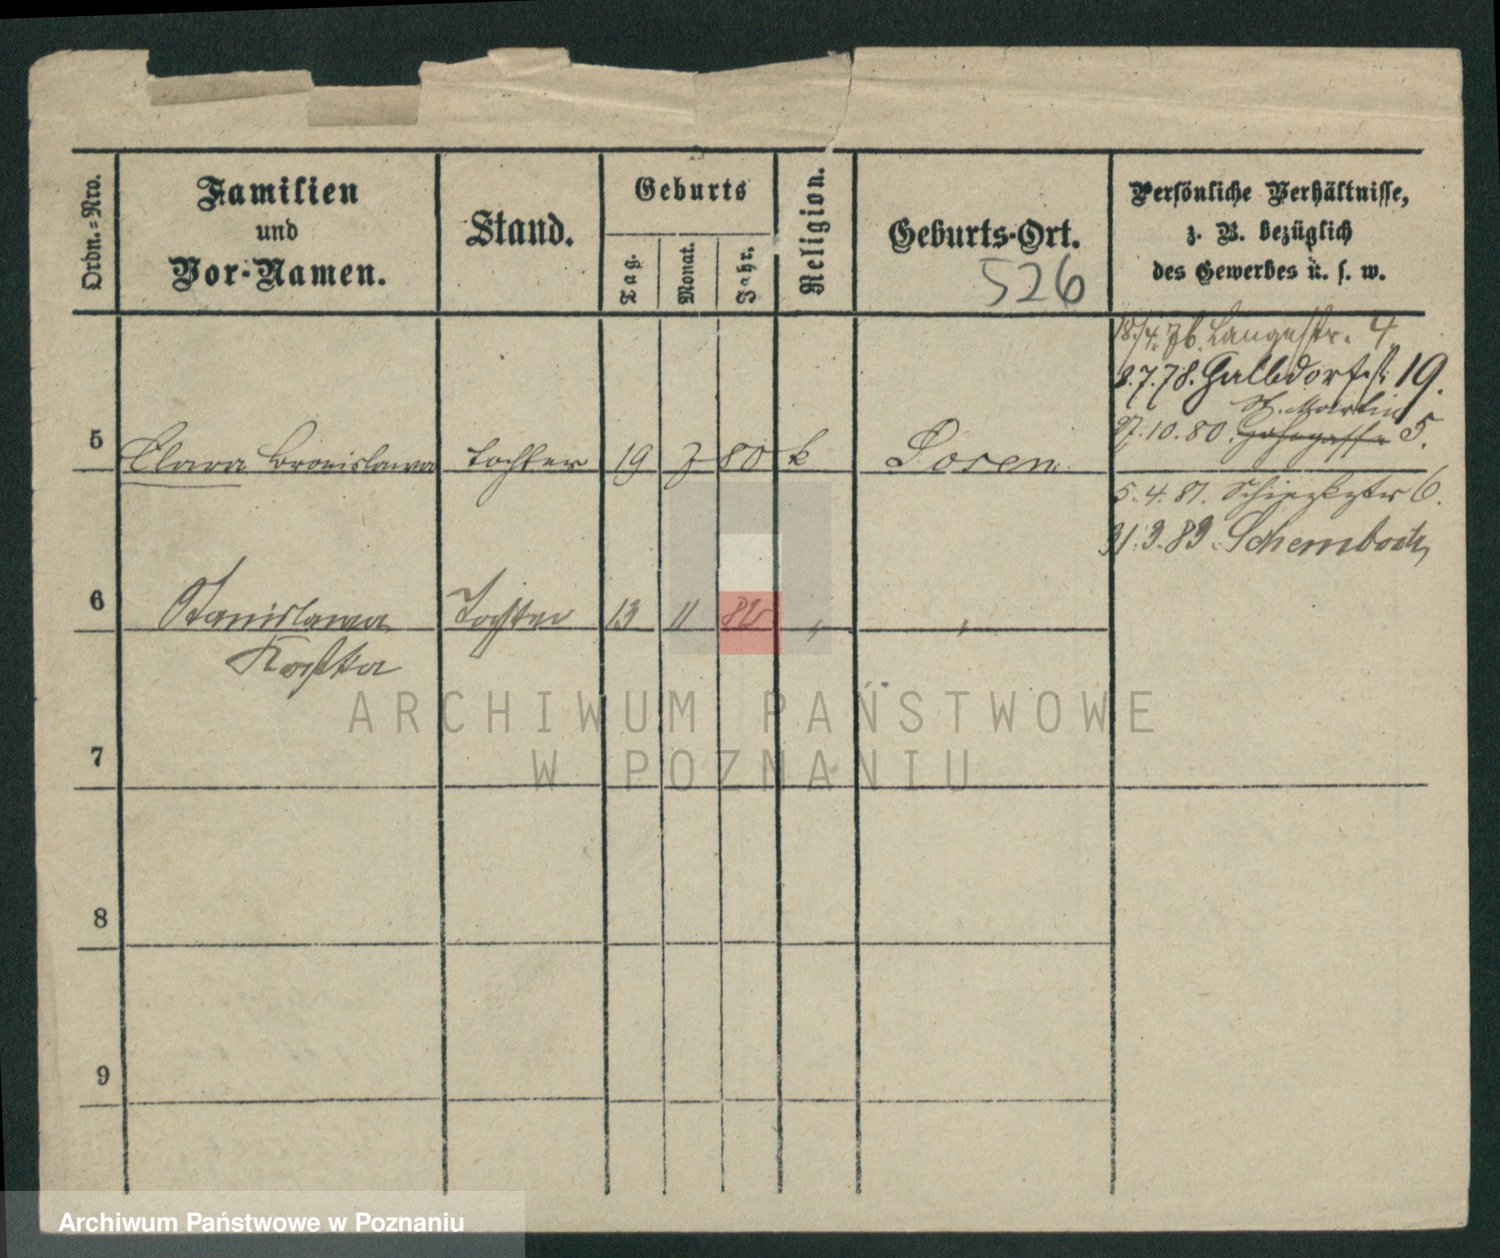 Ordn.=Nro.
Familien
und
Vor-Namen.
Stand.
Geburts
Tag.
Monat.
Jahr.
Religion.
Geburts-Ort.
526
Persönliche Verhältnisse,
z. B. bezüglich
des Gewerbes u. s. w.
18./4.76. Langestr. 4.
3.7.78. Halbdorfstr. 19.
St. Martin
27.10.80. 5.
5 Clara Bronislawa Tochter 19 7 80 k Posen
5.4.81. 6.
31.3.89.
6 Stanislawa Tochter 13 11 82 " "
Kostka
7
8
9
ARCHIWUM PAŃSTWOWE
W POZNANIU
Archiwum Państwowe w Poznaniu